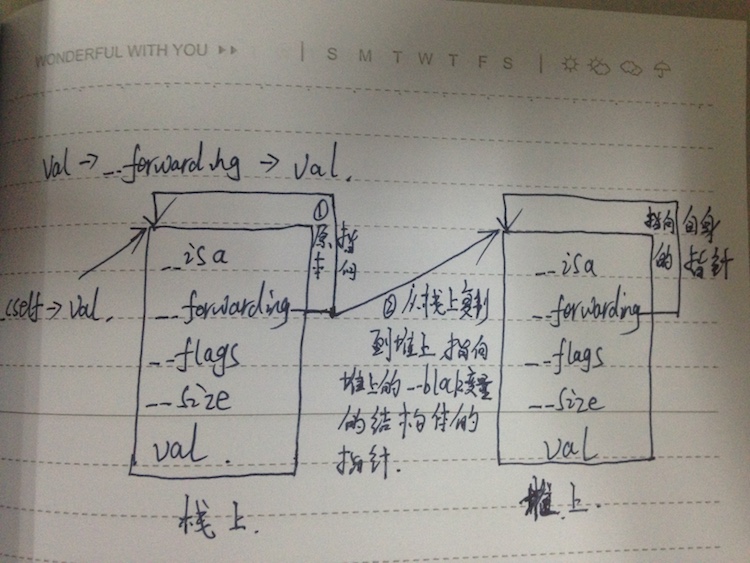 WONDERFUL WITH YOU
S M T W T F S
val -> __forwarding -> val.
① 原本指向
指向自身的指针
__isa
__forwarding
__flags
__size
val.
cself -> val.
② 从栈上复制
到堆上 指向
堆上的__block变量
的结构体的
指针.
__isa
__forwarding
__flags
__size
val
栈上.
堆上.